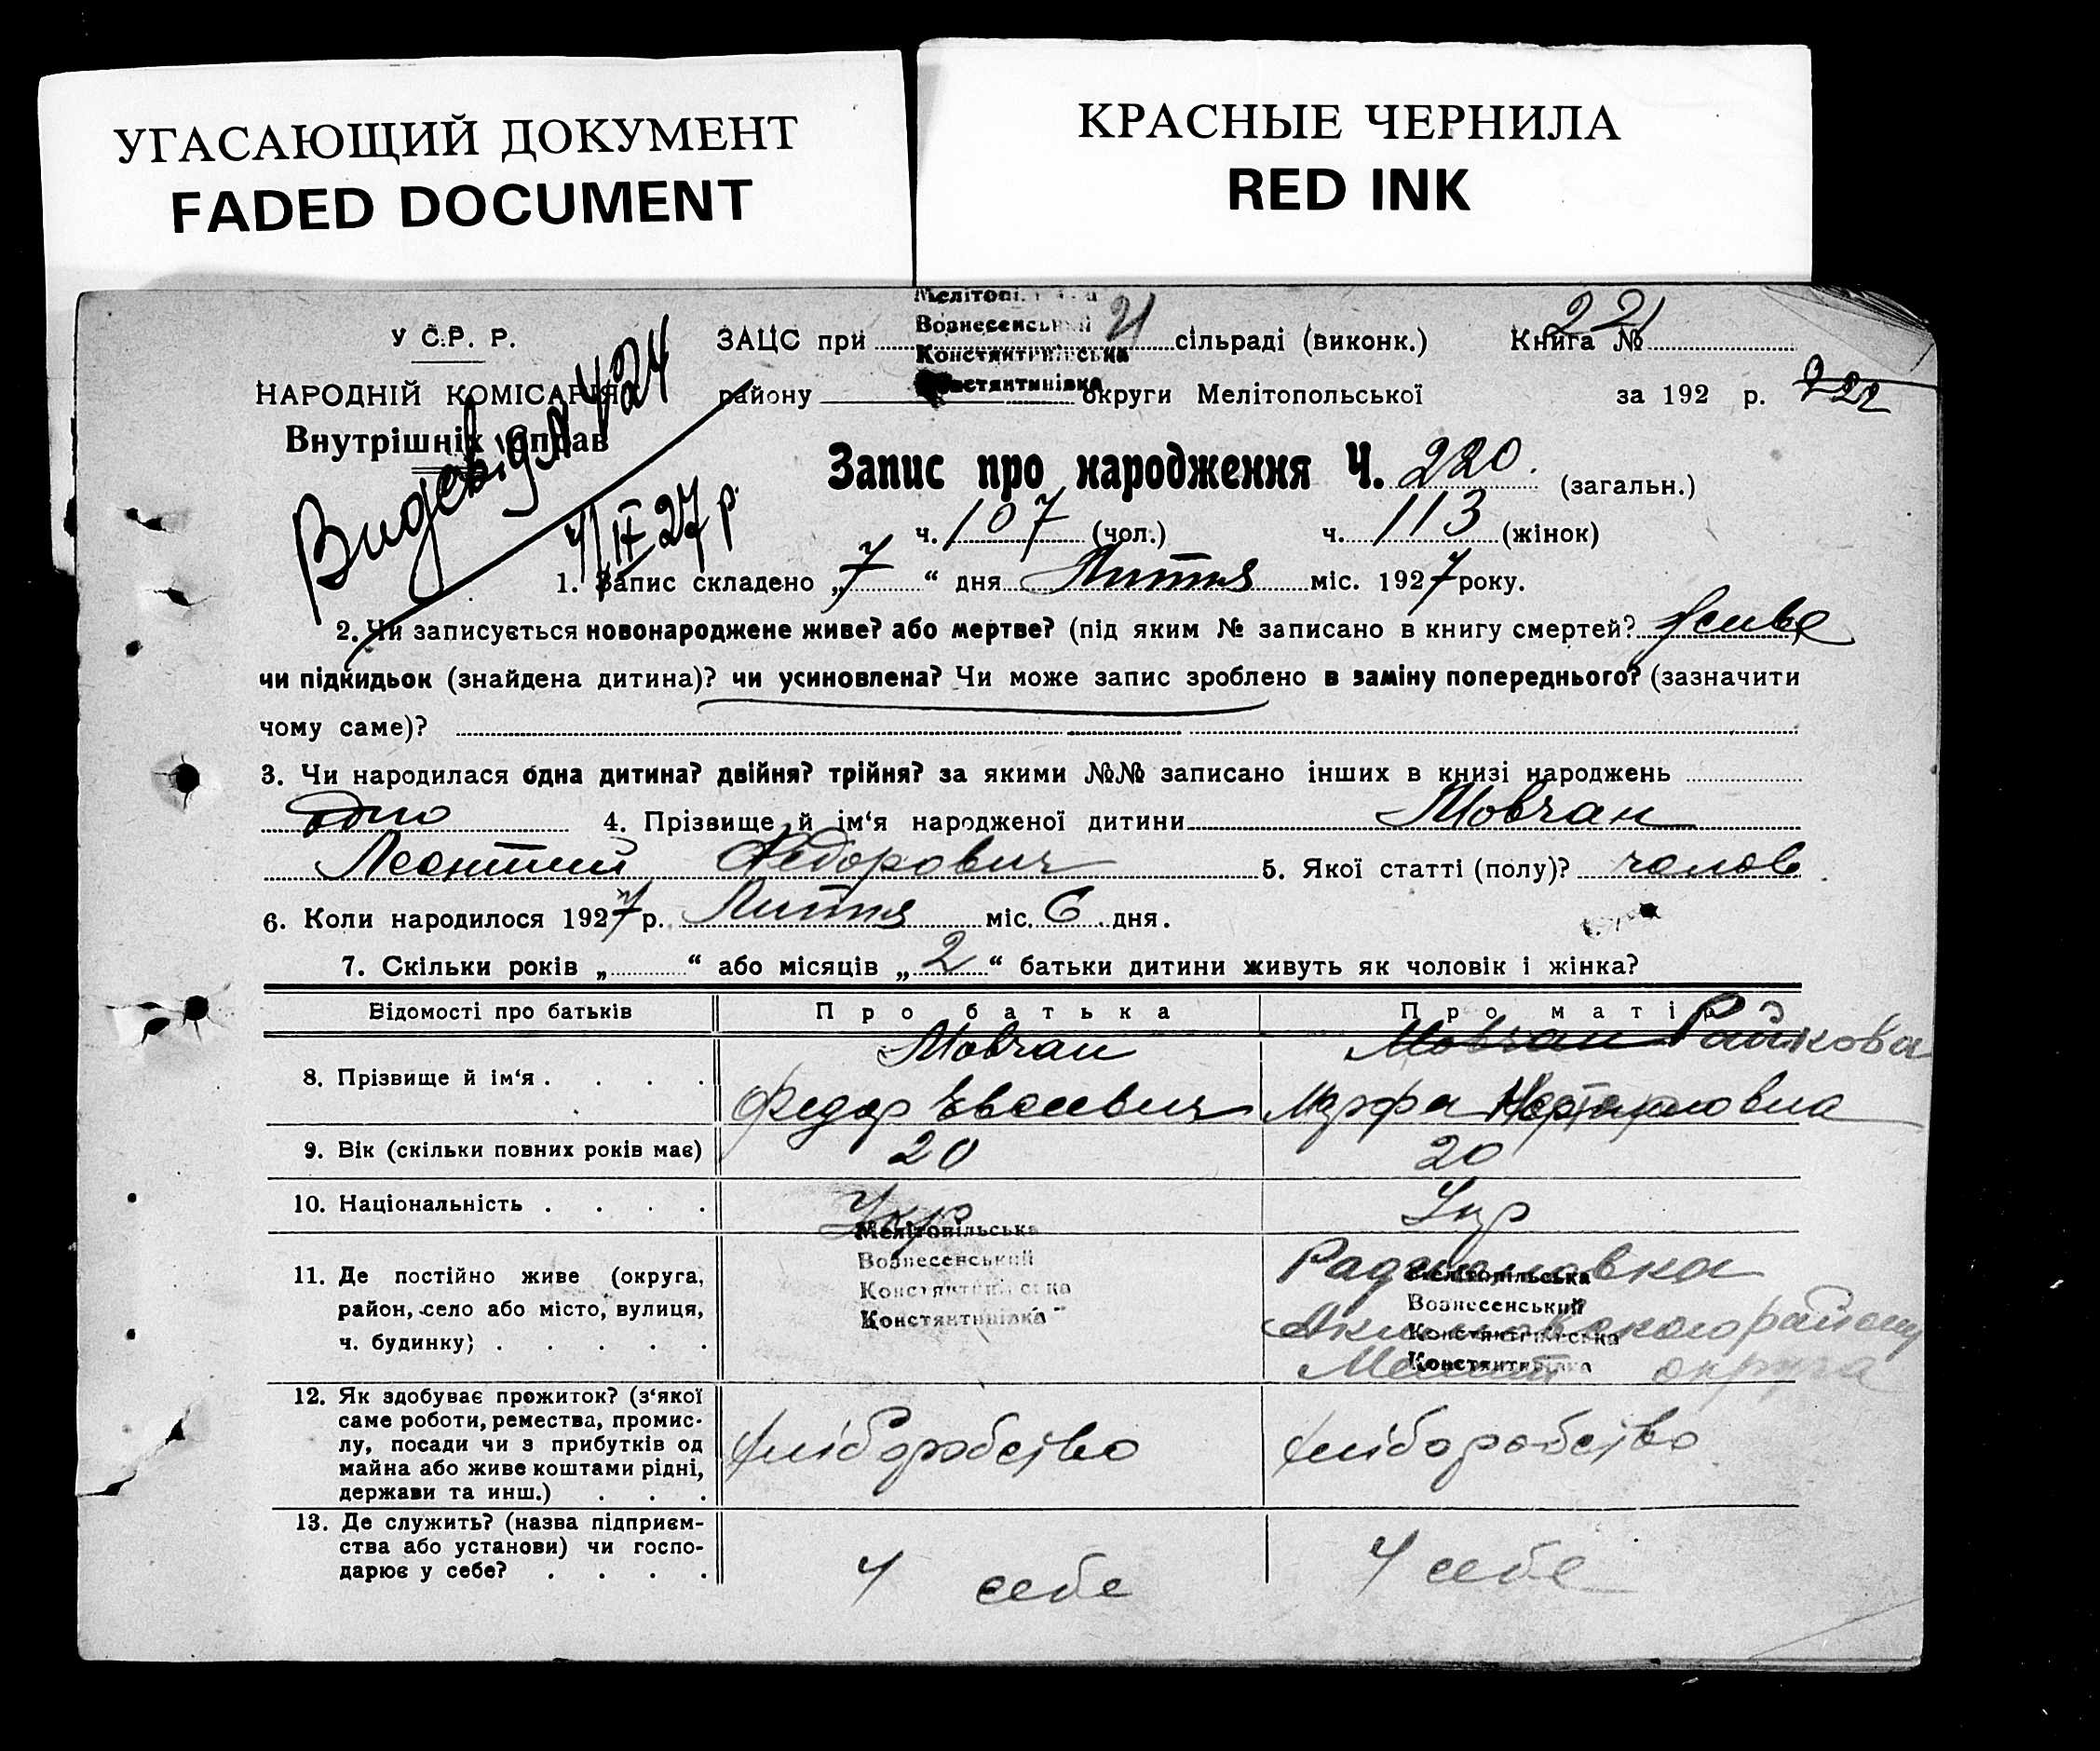 УГАСАЮЩИЙ ДОКУМЕНТ
FADED DOCUMENT
КРАСНЫЕ ЧЕРНИЛА
RED INK
У С.Р. Р.
НАРОДНІЙ КОМІСАРІЯ
Внутрішніх справ
Мелітопі
Вознесенський
Констянтинівська
Констянтинівка
ЗАЦС при 21 сільраді (виконк.) Книга № 221
району округи Мелітопольської за 192 р. 222
Запис про народження Ч. 220. (загальн.)
ч. 107 (чол.) ч. 113 (жінок)
4/IX 27 р.
1. Запис складено „7“ дня Липня міс. 1927 року.
2. Чи записується новонароджене живе? або мертве? (під яким № записано в книгу смертей? живе
чи підкидьок (знайдена дитина)? чи усиновлена? Чи може запис зроблено в заміну попереднього? (зазначити
чому саме)?
3. Чи народилася одна дитина? двійня? трійня? за якими №№ записано інших в книзі народжень
одно 4. Прізвище й ім‘я народженої дитини Мовчан
Леонтий Федорович 5. Якої статті (полу)? чолов
6. Коли народилося 1927 р. Липня міс. 6 дня.
7. Скільки років „ “ або місяців „2“ батьки дитини живуть як чоловік і жінка?
Відомості про батьків Про батька Про матір
8. Прізвище й ім‘я . . . . Мовчан Мовчан
Федор Евсеевич Марфа
9. Вік (скільки повних років має) 20 20
10. Національність . . . . Укр Укр
11. Де постійно живе (округа, район, село або місто, вулиця, ч. будинку)
Мелітопільська
Вознесенський
Констянтинівська
Констянтинівка
Мелітопільська
Вознесенський
Констянтинівська
Констянтинівка
района
округа
12. Як здобуває прожиток? (з‘якої
саме роботи, ремества, промис-
лу, посади чи з прибутків од
майна або живе коштами рідні,
держави та инш.) . . .
хліборобство хліборобство
13. Де служить? (назва підприєм-
ства або установи) чи госпо-
дарює у себе? . . . .
У себе У себе